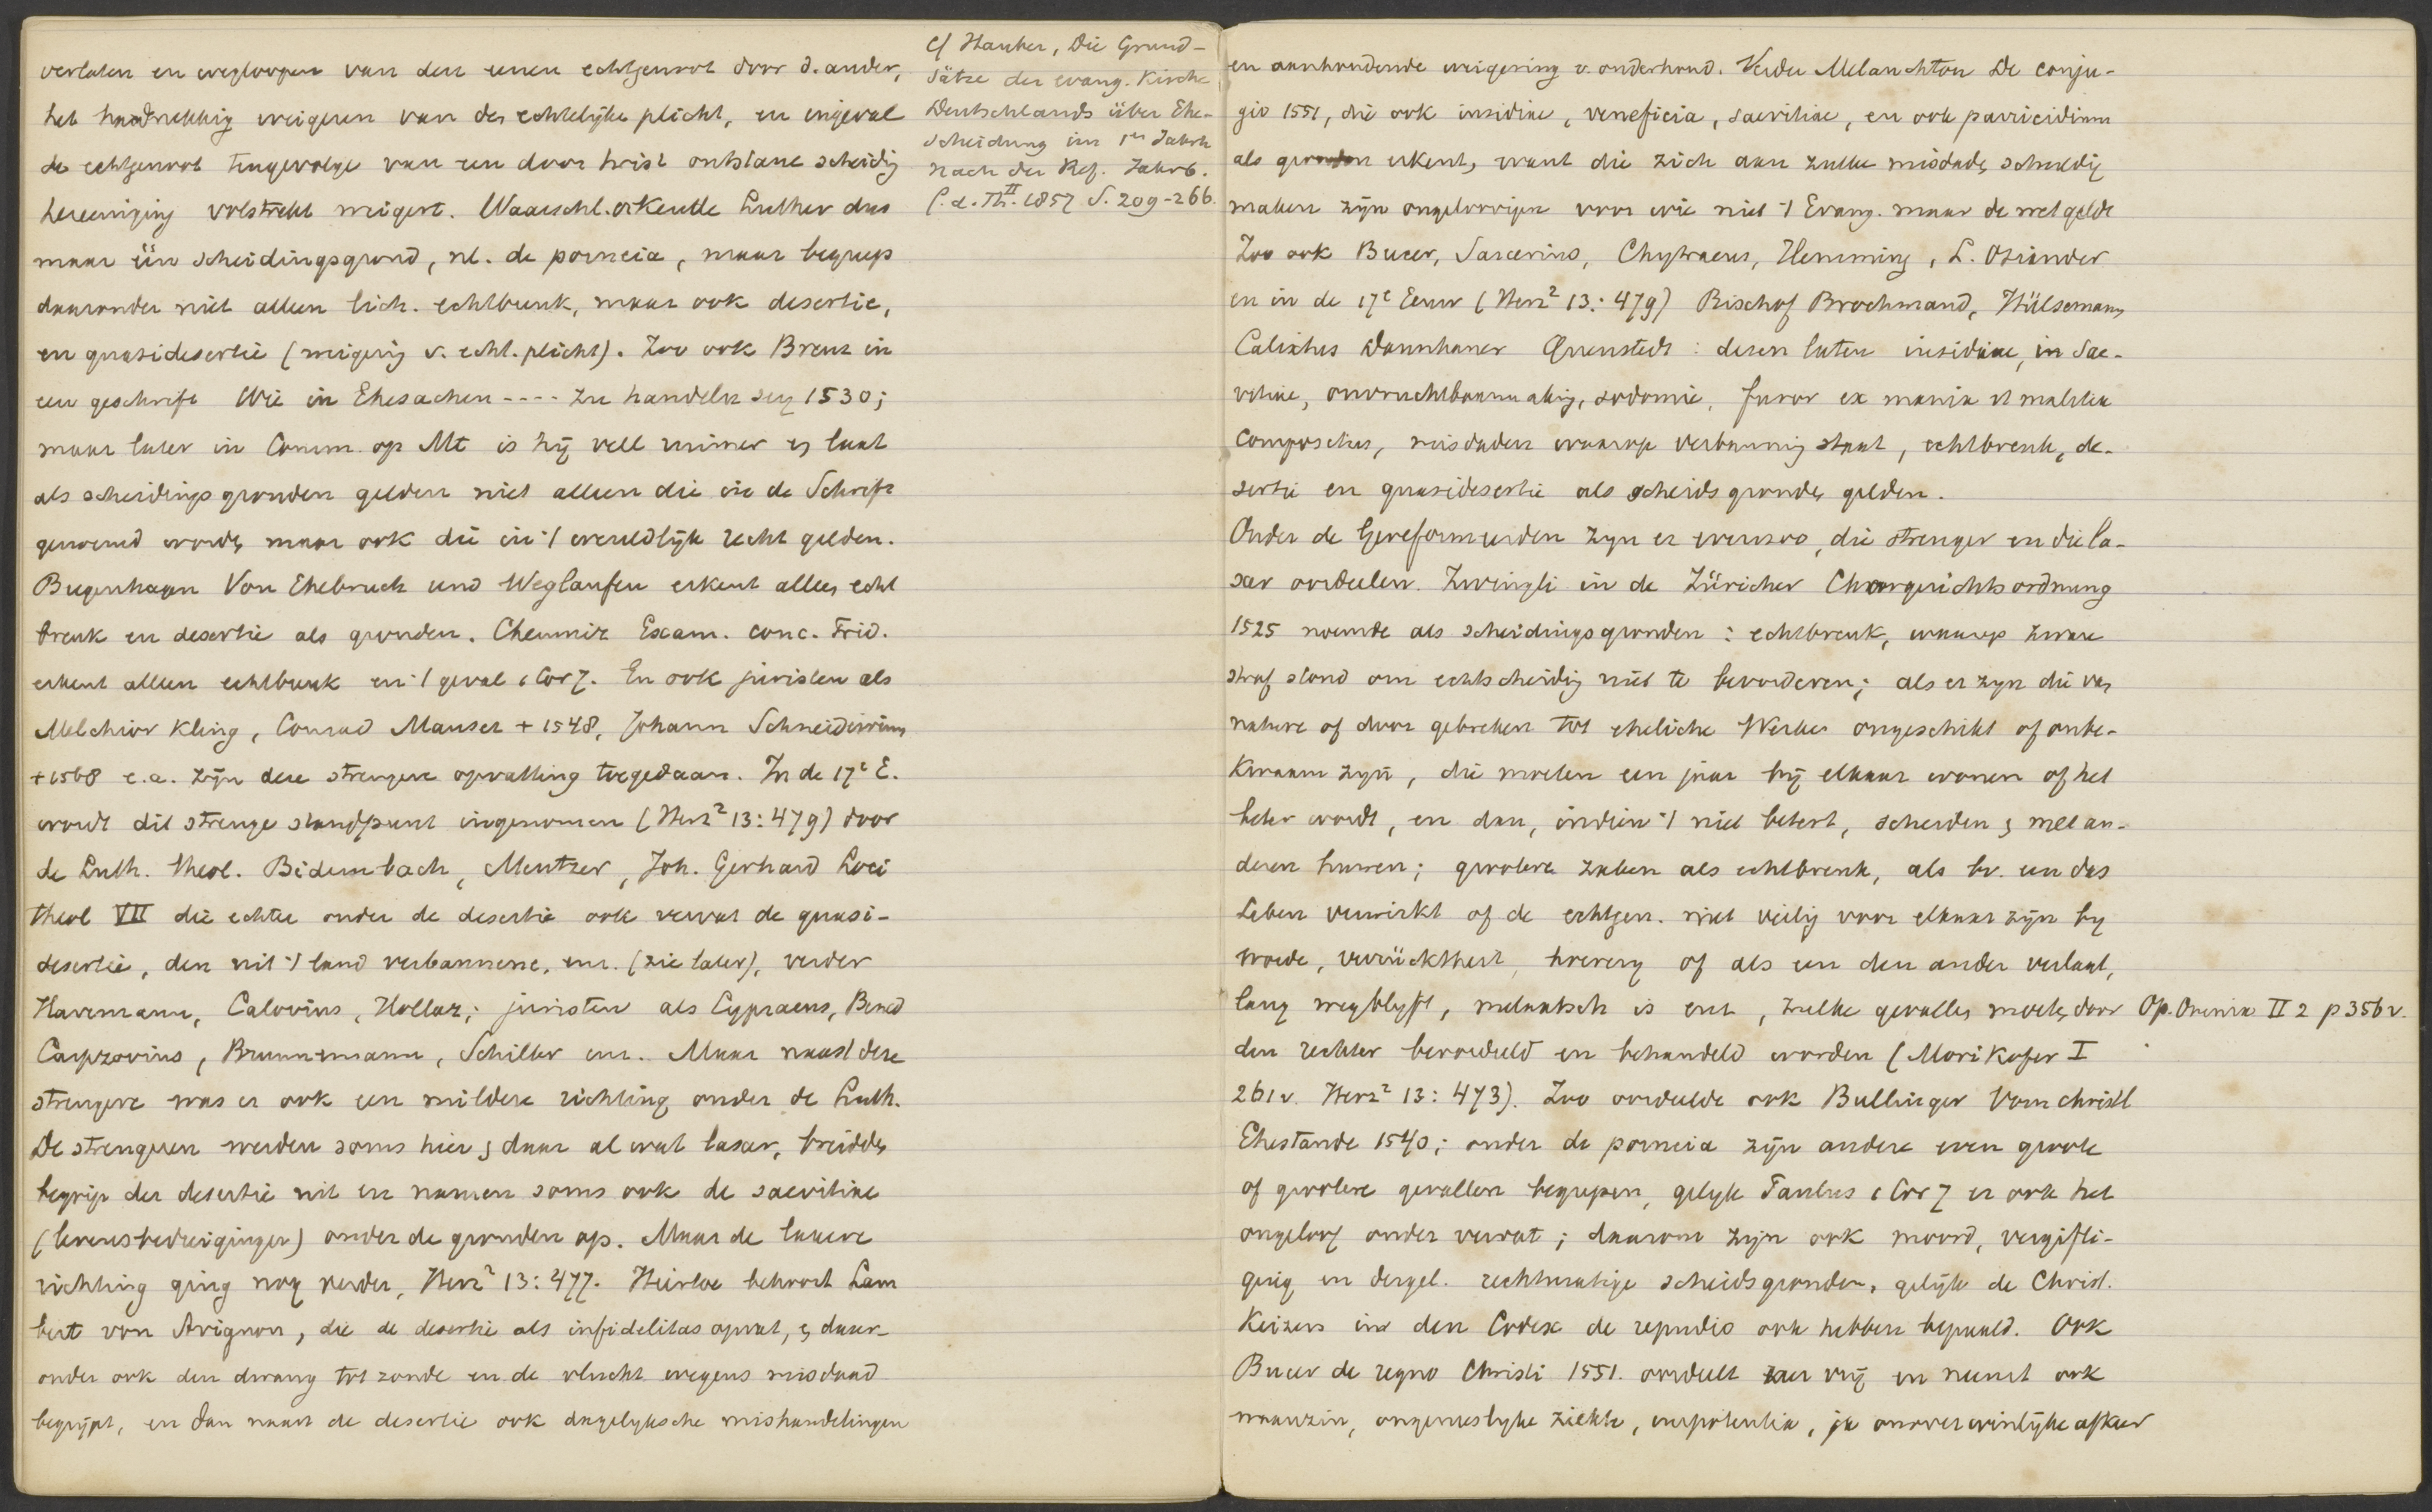 verlaten en wegloopen van den eenen echtgenoot door d. ander,
het hardnekkig weigeren van den echtelijke plicht, en ingeval
de echtgenoot tengevolge van een door twist ontstane scheidig
hereeniging volstrekt weigert. Waarschl. erkende Luther dus
maar één scheidingsgrond, nl. de porneia, maar begreep
daaronder niet alleen lich. echtbreuk, maar ook desertie,
en quasidesertie (weigerig v. echt. plicht). Zoo ook Brenz in
een geschrift Wie in Ehesachen ---- zu handeln sey 1530;
maar later in Comm. op Mt is hij veel ruimer en laat
als scheidingsgronden gelden niet alleen die in de Schrift
genoemd worden maar ook die in 't wereldlijk recht gelden.
Bugenhagen Von Ehebruch und Weglaufen erkent alleen echt
breuk en desertie als gronden. Chemniz Exam. conc. Trid.
erkent alleen echtbreuk en 't geval 1 Cor 7. En ook juristen als
Melchior Kling, Conrad Mauser + 1548, Johann Schneidewin,
+ 1568 e.a. zijn deze strengere opvatting toegedaan. In de 17e E.
wordt dit strenge standpunt ingenomen (Herz² 13: 479) door
de Luth. theol. Bidembach, Mentzer, Joh. Gerhard Loci
theol VII die echter onder de desertie ook vervat de quasi-
desertie, den uit 't land verbannene, enz. (zie later), verder
Havemann, Calovius, Hollaz; juristen als Cypraeus, Bened
Carpzovius, Brunnemann, Schilter enz. Maar naast deze
strengere was er ook een mildere richting onder de Luth.
De strengeren werden soms hier en daar al wat laxer, breidden
begrip der desertie uit en namen soms ook de saevitiae
(levensbedreigingen) onder de gronden op. Maar de laxere
richting ging nog verder, Herz² 13: 477. Hiertoe behoort Lam
bert von Avignon, die de desertie als infidelitas opvat, en daar-
onder ook den dwang tot zonde en de vlucht wegens misdaad
begrijpt, en dan naast de desertie ook dagelyksche mishandelingen
cf Hauber, Die Grund-
sätze der evang. Kirche
Deutschlands über Ehe-
scheidung im 1en Jahrh
nach der Ref. Jahrb.
f. d. Th. II 1857 S. 209-266.
en aanhoudende weigering v. onderhoud. Verder Melanchton De conju-
gio 1551, die ook insidiae, veneficia, saevitiae, en ook parricidium
als gronden erkent, want die zich aan zulke misdaden schuldig
maken zijn ongeloovigen voor wie niet 't Evang. maar de wet geldt
Zoo ook Bucer, Sarcerius, Chytraeus, Hemming, L. Osiander
en in de 17e Eeuw (Herz² 13: 479) Bischof Brochmand, Hülsemann,
Calixtus Dannhauer Quenstedt: dezen laten insidiae, in Sae-
vitiae, onvruchtbaarmakig, sodomie, furor ex mania et malitia
compositus, misdaden waarop verbanning staat, echtbreuk, de-
sertie en quasidesertie als scheidsgronden gelden.
Onder de Gereformeerden zyn er evenzoo, die strenger en die la-
xer oordeelen. Zwingli in de Züricher Chorgerichtsordnung
1525 noemde als scheidingsgronden: echtbreuk, waarop zware
straf stond om echtscheidig niet te bevorderen; als er zyn die van
nature of door gebreken tot eheliche Werke ongeschikt of onbe-
kwaam zyn, die moeten een jaar bij elkaar wonen of het
beter wordt, en dan, indien 't niet betert, scheiden en met an-
deren huwen; grootere zaken als echtbreuk, als bv. een das
Leben verwirkt of de echtgen. niet veilig voor elkaar zijn by
woede, verrücktheit, hoererij of als een den ander verlaat,
lang wegblyft, melaatsch is enz, zulke gevallen moeten door
den rechter beoordeeld en behandeld worden (Morikofer I
261v. Herz² 13: 473). Zoo oordeelde ook Bullinger Vom christl
Ehestande 1540; onder de porneia zijn andere even groote
of grootere gevallen begrepen, gelyk Paulus 1 Cor 7 er ook het
ongeloof onder vervat; daarom zijn ook moord, vergifti-
ging en dergel. rechtmatige scheidsgronden, gelijk de Christ.
Keizers in den Codex de repudio ook hebben bepaald. Ook
Bucer de regno Christi 1551. oordeelt zeer vrij en neemt ook
waanzin, ongeneeslyke ziekte, impotentia, ja onoverwinlijke afkeer
Op. Omnia II 2 p 356v.